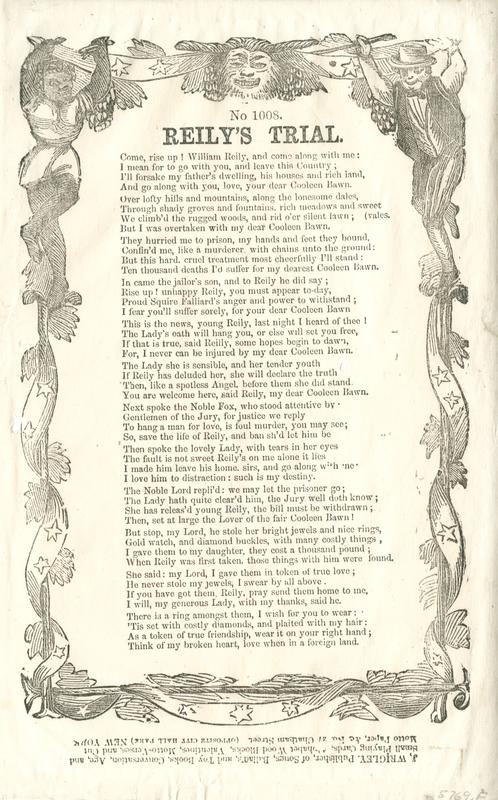 No 1008.
REILY'S TRIAL.
Come, rise up! William Reily, and come along with me:
I mean for to go with you, and leave this Country;
I'll forsake my father's dwelling, his houses and rich land,
And go along with you, love, your dear Cooleen Bawn.
Over lofty hills and mountains, along the lonesome dales,
Through shady groves and fountains, rich meadows and sweet
We climb'd the rugged woods, and rid o'er silent lawn; (vales.
But I was overtaken with my dear Cooleen Bawn.
They hurried me to prison, my hands and feet they bound,
Confin'd me, like a murderer, with chains unto the ground:
But this hard, cruel treatment most cheerfully I'll stand:
Ten thousand deaths I'd suffer for my dearest Cooleen Bawn.
In came the jailor's son, and to Reily he did say;
Rise up! unhappy Reily, you must appear to-day,
Proud Squire Falliard's anger and power to withstand;
I fear you'll suffer sorely, for your dear Cooleen Bawn
This is the news, young Reily, last night I heard of thee!
The Lady's oath will hang you, or else will set you free,
If that is true, said Reilly, some hopes begin to dawn,
For, I never can be injured by my dear Cooleen Bawn.
The Lady she is sensible, and her tender youth
If Reily has deluded her, she will declare the truth
Then, like a spotless Angel, before them she did stand
You are welcome here, said Reily, my dear Cooleen Bawn.
Next spoke the Noble Fox, who stood attentive by
Gentlemen of the Jury, for justice we reply
To hang a man for love, is foul murder, you may see;
So, save the life of Reily, and banish'd let him be
Then spoke the lovely Lady, with tears in her eyes
The fault is not sweet Reily's on me alone it lies
I made him leave his home, sirs, and go along with me
I love him to distraction: such is my destiny.
The Noble Lord repli'd: we may let the prisoner go;
The Lady hath quite clear'd him, the Jury well doth know;
She has releas'd young Reily, the bill must be withdrawn;
Then, set at large the Lover of the fair Cooleen Bawn!
But stop, my Lord, he stole her bright jewels and nice rings,
Gold watch, and diamond buckles, with many costly things,
I gave them to my daughter, they cost a thousand pound;
When Reily was first taken, those things with him were found.
She said: my Lord, I gave them in token of true love;
He never stole my jewels, I swear by all above.
If you have got them, Reily, pray send them home to me,
I will, my generous Lady, with my thanks, said he.
There is a ring amongst them, I wish for you to wear:
'Tis set with costly diamonds, and plaited with my hair:
As a token of true friendship, wear it on your right hand;
Think of my broken heart, love when in a foreign land.
J. WRIGLEY, Publisher, of Songs, Ballads, and Toy Books, Conversation, Age, and
Small Playing Cards, Alphabet Wood Blocks, Valentines, Motto-Verses, and Cut
Motto Paper, &c No. 27 Chatham Street (OPPOSITE CITY HALL PARK) NEW YORK
5769.F